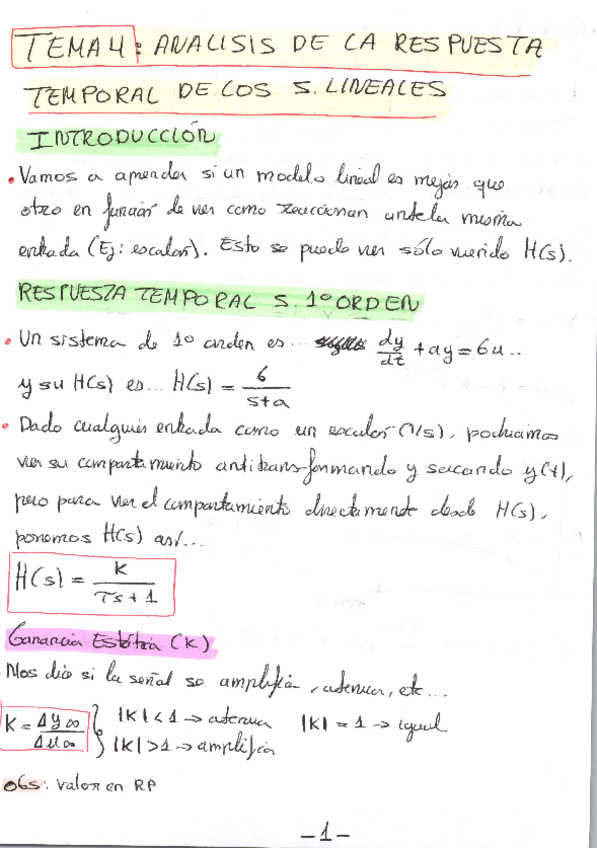 TEMA 4: ANALISIS DE LA RESPUESTA
TEMPORAL DE LOS S. LINEALES
INTRODUCCIÓN
• Vamos a aprender si un modelo lineal es mejor que
otro en función de ver como reaccionan ante la misma
entrada (Ej: escalón). Esto se puede ver sólo viendo H(s).
RESPUESTA TEMPORAL S. 1º ORDEN
• Un sistema de 1º orden es... dy/dt + ay = bu...
y su H(s) es... H(s) = b/(s+a)
• Dado cualquier entrada como un escalón (1/s), podríamos
ver su comportamiento antitransformando y sacando y(t),
pero para ver el comportamiento directamente desde H(s),
ponemos H(s) así...
H(s) = K/(τs + 1)
Ganancia Estática (K)
Nos dice si la señal se amplifica, atenua, etc...
K = Δy∞/Δu∞ } |K| < 1 → atenua |K| = 1 → igual
|K| > 1 → amplifica
obs: valor en RP
– 1 –